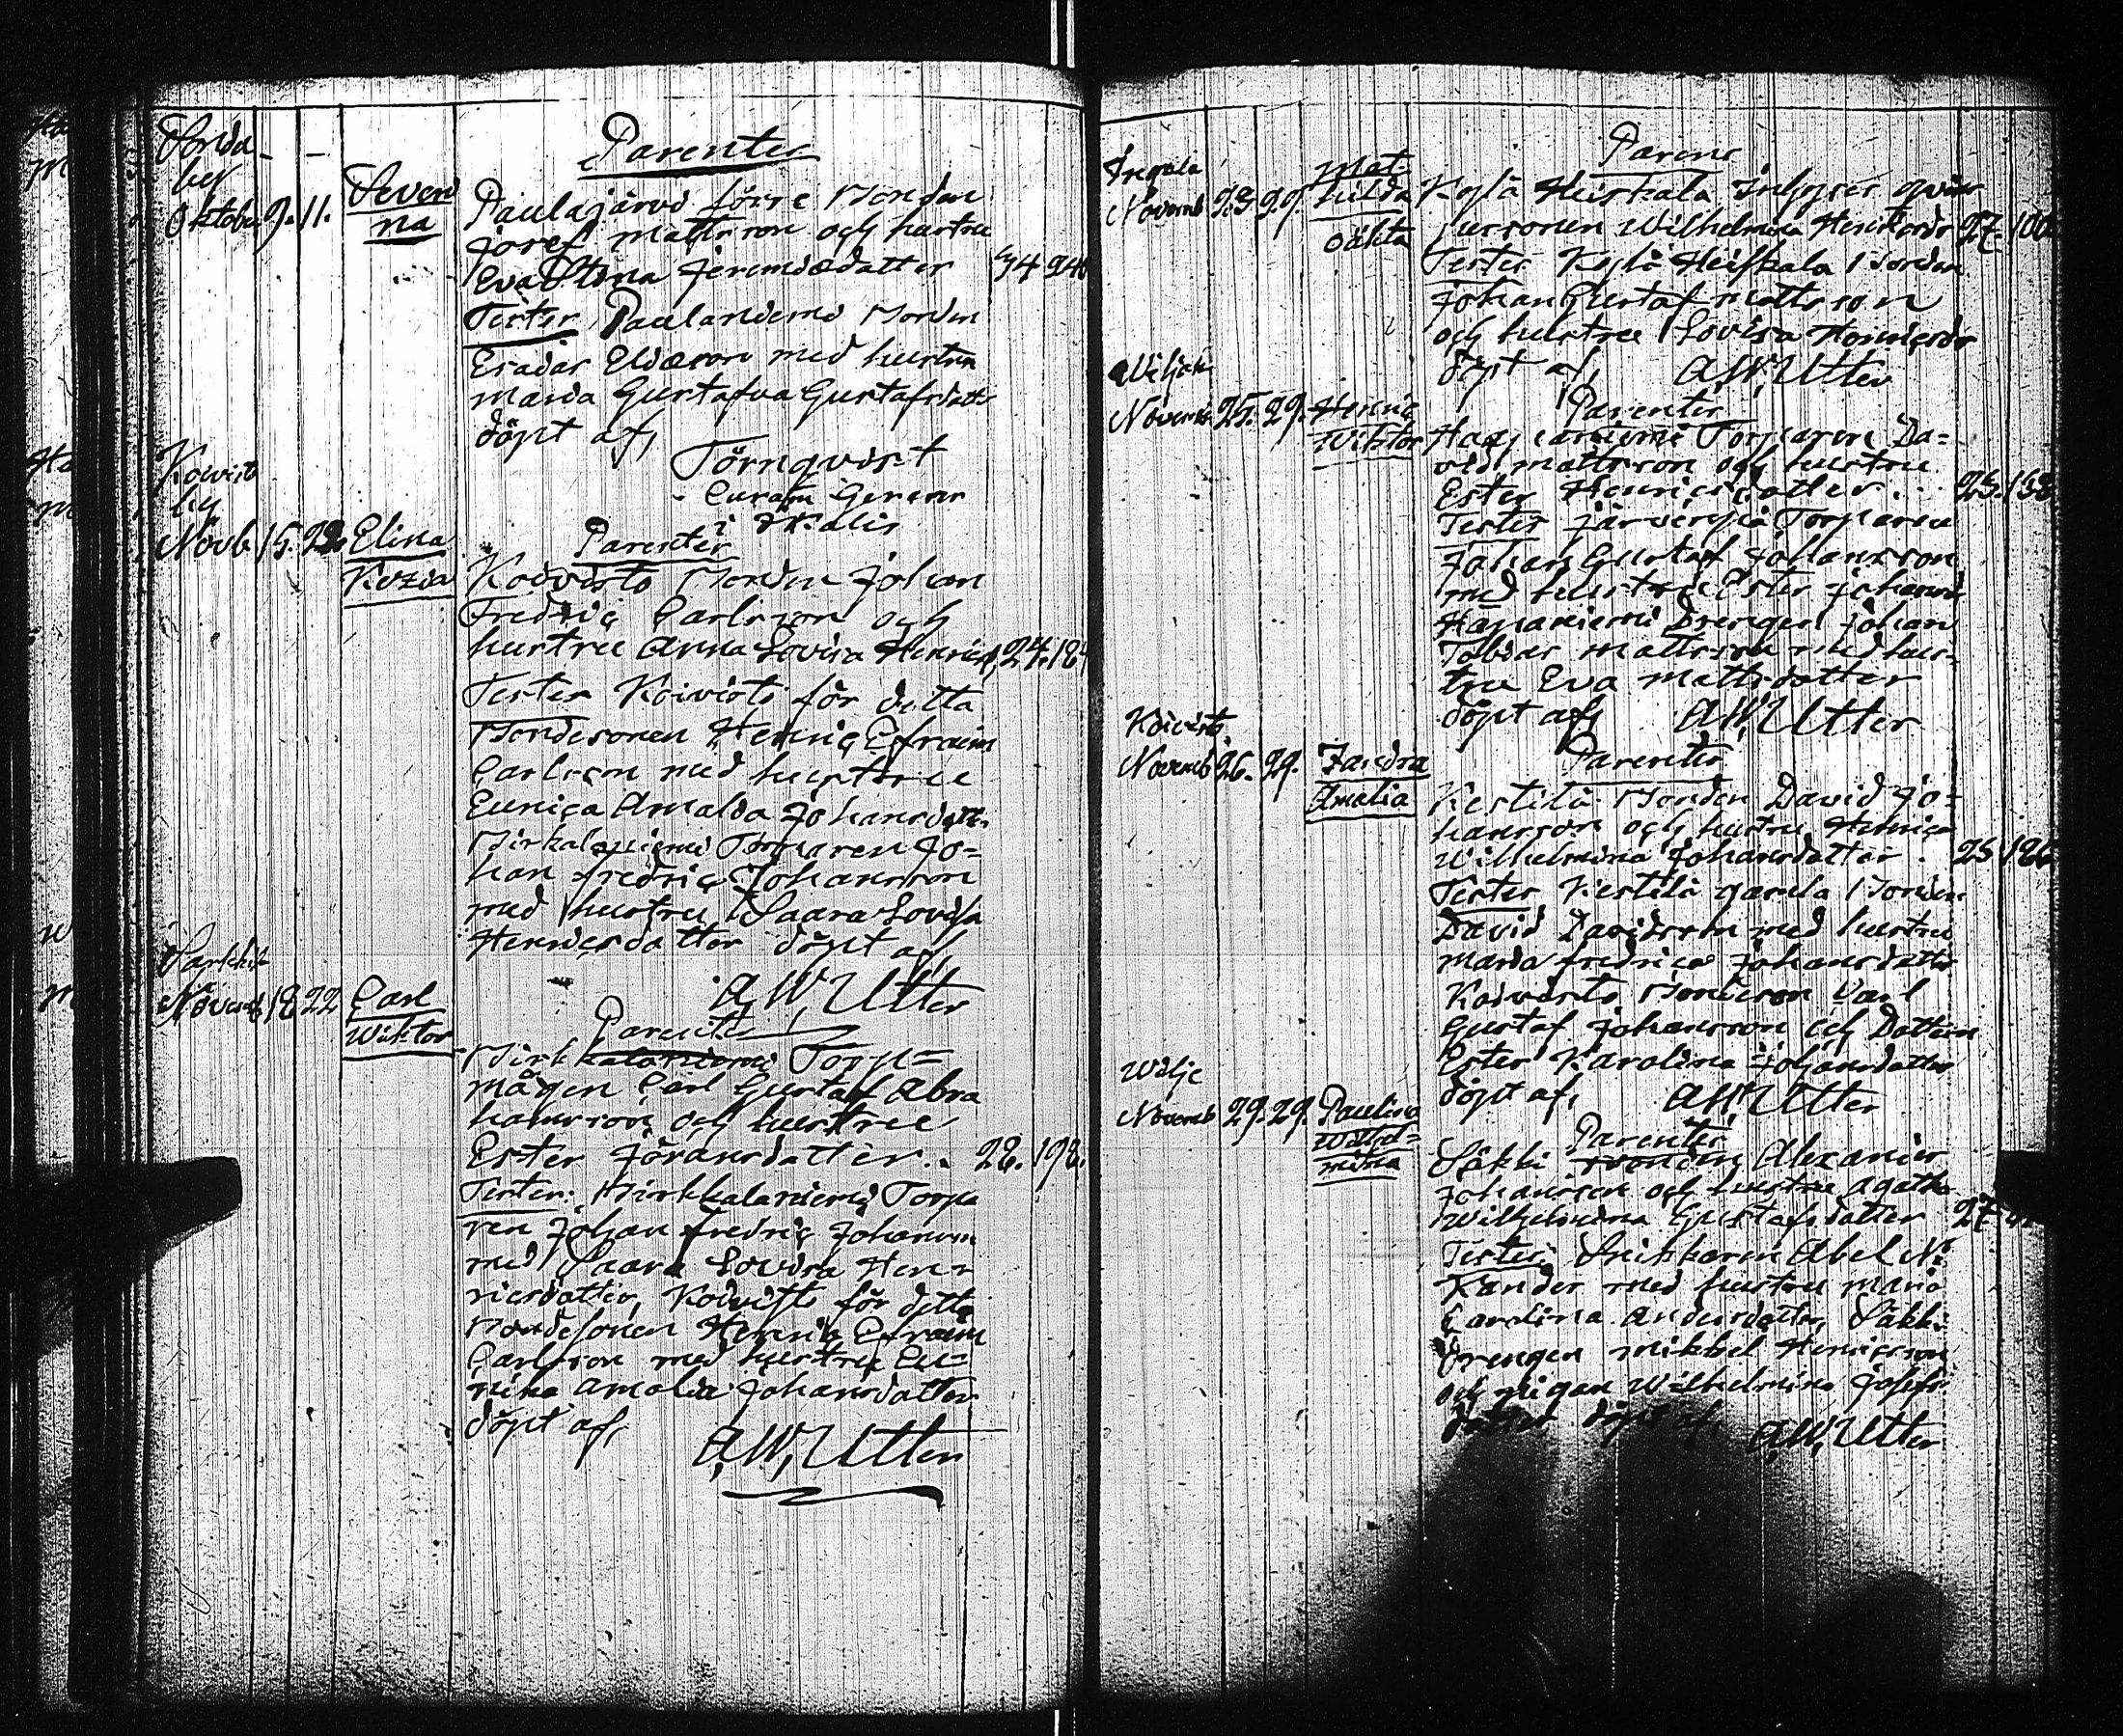 Parenter
by
Oktober 9. 11. Severi
na
Paulajärvi förre Bonden
Josef Mattsson och hustru
Eva Stina Jeremiædatter 34 240
Tester Paulaniemi Bonden
Esaias Eliæson med hustru
Maria Gustafva Gustafsdatter
döpt af,
Törnqvist
Curam Gerens
i Ikalis
Koivisto
by
Novb 15. 22. Elina
Kezia
Parenter
Koivisto Bonden Johan
Fredric Carlsson och
hustru Anna Lovisa Henricsd 24. 18
Tester Koivisto för detta
Bondesonen Henric Efraim
Carlsson med hustru
Eunica Amalda Johansdatt.
Mirkalaniemi Torparen Jo=
han Fredric Johansson
med hustru Saara Lovisa
Henricsdatter döpt af,
A, W, Utter
Novemb 18 22 Carl
Wiktor
Parenter
Torp=
mågen Carl Gustaf Abra
hamsson och hustru
Ester Göransdatter.. 28. 198.
Tester: Mirkkalaniemi Torpa
ren Johan Fredric Johansson
med Saara Lovisa Hen=
ricsdatter, Koivisto för detta
Bondesonen Henric Efraim
Carlsson med hustru Eu=
nika Amalia Johansdatter
döpt af,
A, W, Utter
Novemb 23 29. Mat=
hilda
oäkta
Parens
Kylä Heiskala Inhyses qvins
personen Wilhelmina Henricsdr 27. 100
Tester Kylä Heiskala Bonden
Johan Gustaf Mattsson
och hustru Lovisa Henricsdr
döpt af, A, W, Utter
Novemb 25. 29. Henric
Wiktor
Parenter
Haapaniemi Torparen Da=
vid Mattsson och hustru
Ester Henricsdatter... 23. 158
Tester Torparen
Johan Gustaf Johansson
med hustru Ester Johansd
Haapaniemi Drengen Johan
Tobias Mattsson med hus=
tru Eva Mattsdatter
döpt af, A, W, Utter
Koivisto
Novemb 26. 29. Zandra
Amalia
Parenter
Kestilä Bonden David Jo=
hansson och hustru Henrica
Wilhelmina Johansdatter. 25 186
Tester Kestilä gamla Bonden
David Davidsson med hustru
Maria Fredrica Johansdatter
Koivisto Bondeson Carl
Gustaf Johansson och Dottern
Ester Karolina Johansdatter
döpt af, A, W, Utter
Novemb 29. 29. Paulina
Wilhel=
mina
Parenter
Säkki Bonden Alexander
Johansson och hustru Agatha
Wilhelmina Gustafsdatter 27
Tester Abel Ni
Kander med hustru Maria
Carolina Andersdatter, Säkki
Drengen Mikkel Henricsson
och pigan Wilhelmina Josefs
döpt af, A, W, Utter